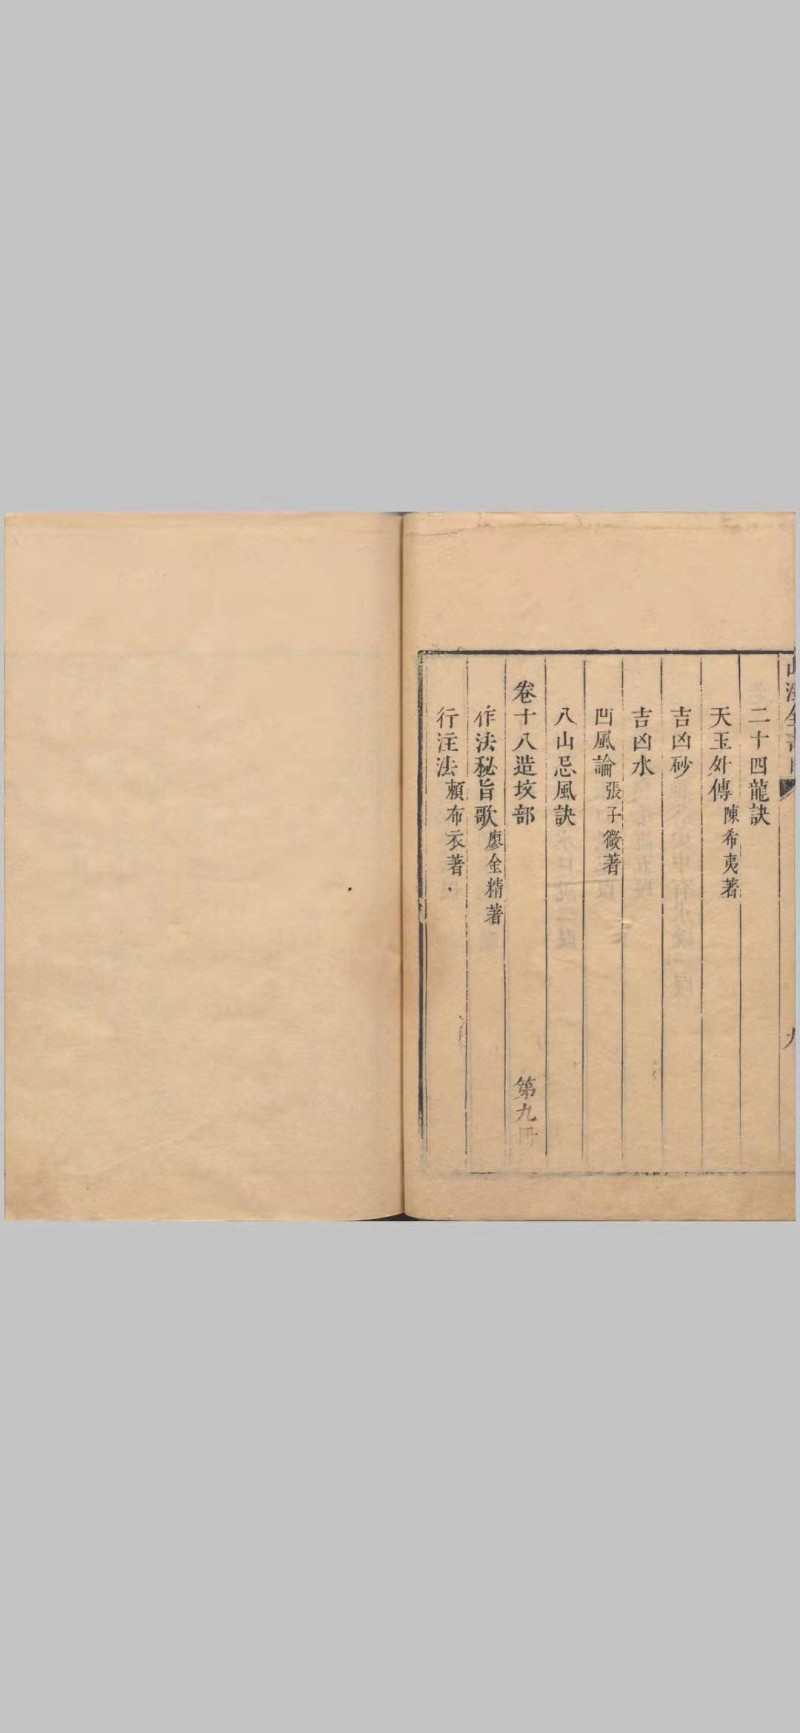 二十四龍訣
天玉外傳 陳希夷著
吉凶砂
吉凶水
凹風論 張子微著
八山忌風訣
卷十八造坟部 第九冊
作法秘旨歌 廖金精著
行注法 頼布衣著